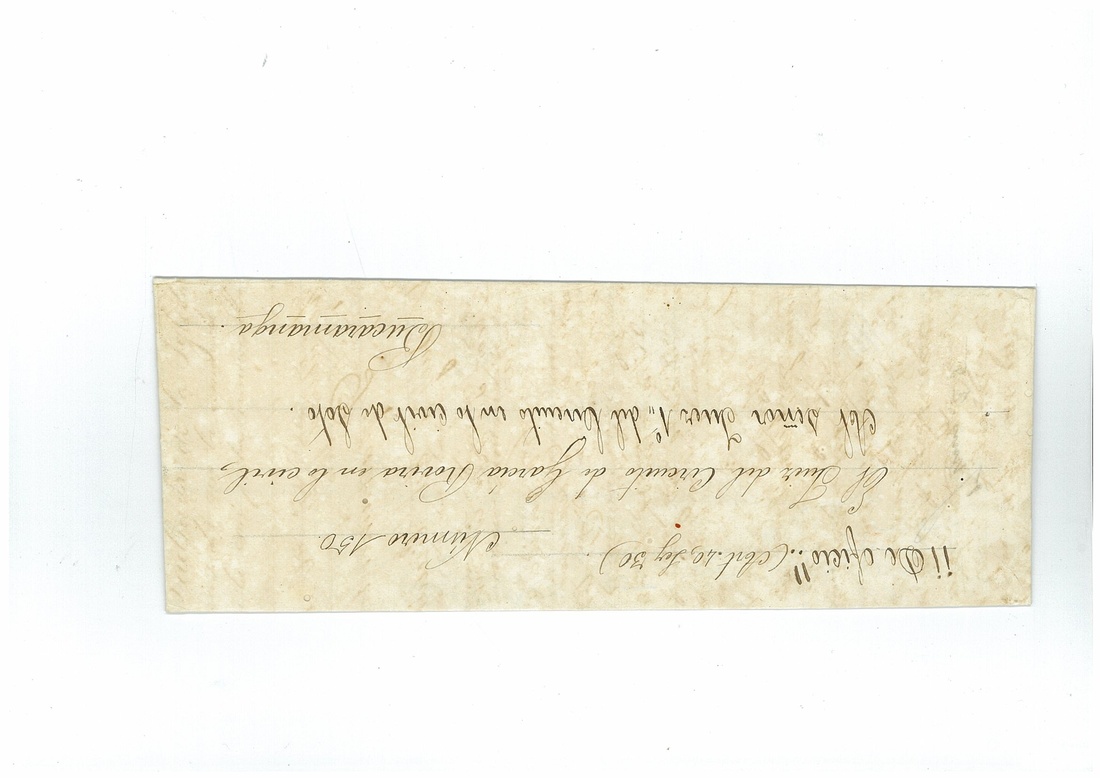 ¡¡De oficio!! (Art. 20, Ley 30).
Número 150.
El Juez del Circuito de García Rovira en lo civil,
Al señor Juez 1º del Circuito en lo civil de Soto.
Bucaramanga.